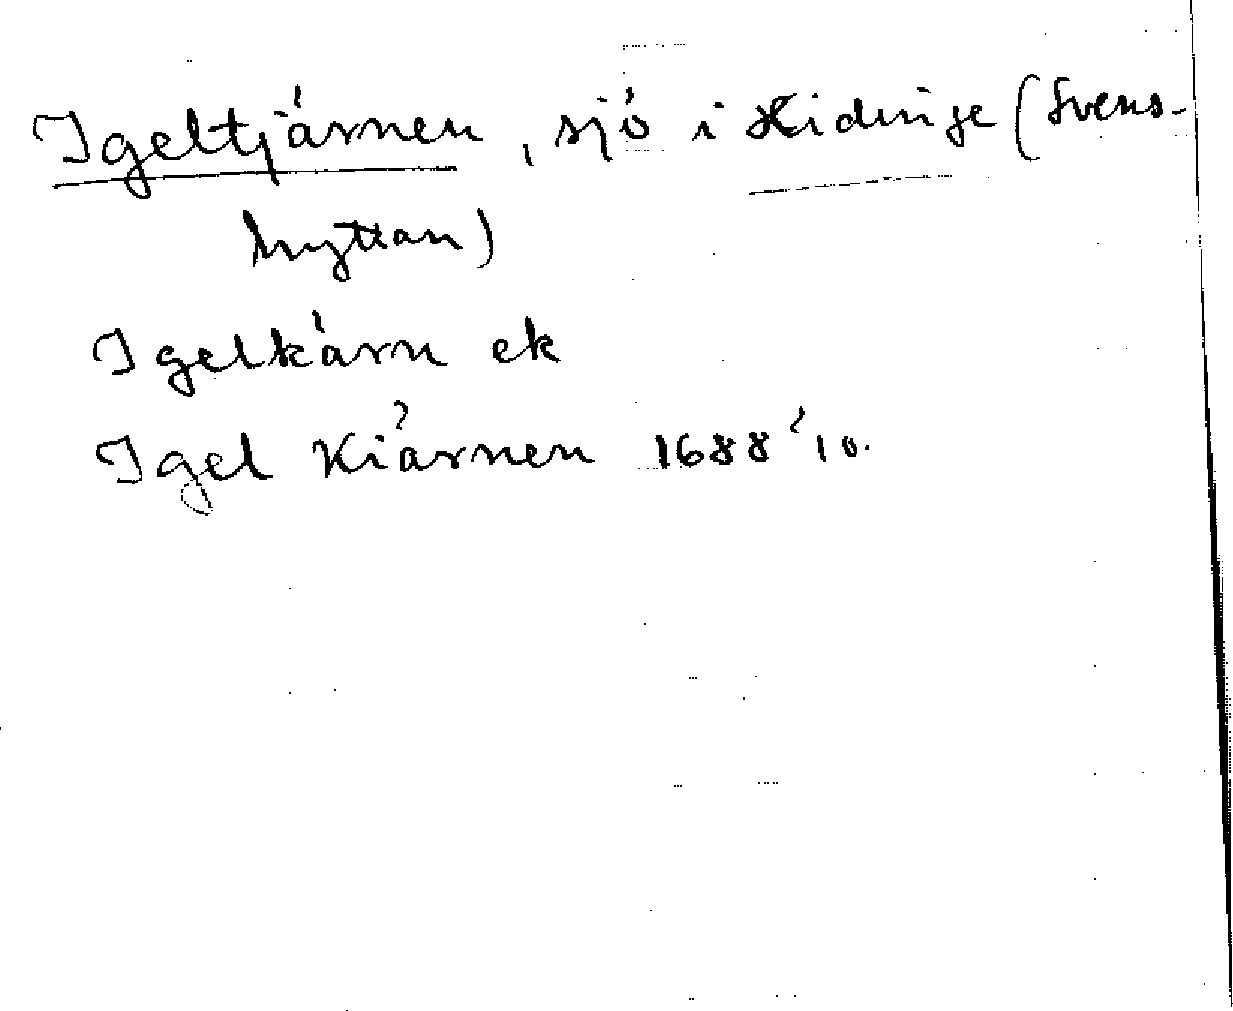 Igeltjärnen, sjö i Hidinge (Svens-
hyttan)
Igelkärn ek
Igel Kiärnen 1688 '10.